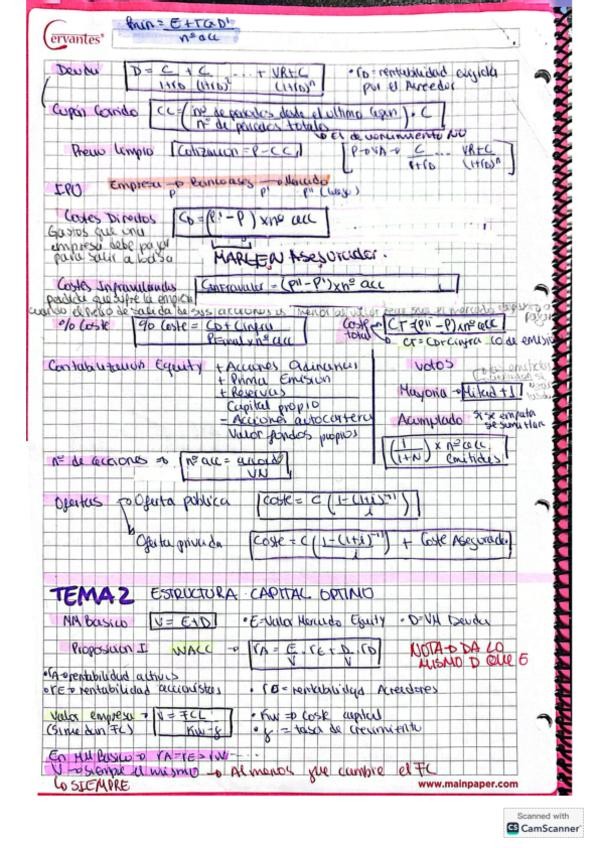 Cervantes
Pmin = E + rG·D' / nº acc
Deuda D = C/(1+rD) + C/(1+rD)² ... + VR+C/(1+rD)ⁿ • rD = rentabilidad exigida por el Acreedor
Cupón Corrido CC = (nº de periodos desde el ultimo cupon / nº de periodos totales) · C
→ El de vencimiento NO
Precio Limpio Cotización = P - CC [P→VA→ C/(1+rD) ... VR+C/(1+rD)ⁿ]
IPO Empresa → Banco ases → Mercado
P P' P''
Costes Directos CD = (P' - P) x nº acc
Gastos que una
empresa debe pagar
para salir a bolsa MARGEN Asegurador.
Costes Infravalorados Cinfravalor = (P'' - P') x nº acc
perdida que sufre la empresa
cuando el precio de salida de sus acciones es menor al valor que el mercado
pagar
% Coste % Coste = CD + Cinfra / Pfinal x nº acc Coste total → CT = (P'' - P) x nº acc
CT = CD + Cinfra
Contabilización Equity + Acciones Ordinarias
+ Prima Emision
+ Reservas
Capital propio
- Acciones autocartera
Valor fondos propios
Votos
Mayoría → Mitad + 1
Acumulado si se empata se sumitlan
(1/(1+N)) x nº acc emitidas
nº de acciones → nº acc = / VN
Ofertas → Oferta pública Coste = C (1-(1+i)⁻ⁿ / i)
Oferta privada Coste = C (1-(1+i)⁻ⁿ / i) + Coste Asegurado.
TEMA 2 ESTRUCTURA CAPITAL OPTIMO
MM Basico V = E+D • E = Valor Mercado Equity • D = VM Deuda
Proposicion I WACC → rA = E/V · rE + D/V · rD NOTA → DA LO MISMO D QUE E
• rA → rentabilidad activos
• rE → rentabilidad accionistas • rD = rentabilidad Acreedores
Valor empresa → V = FCL / Kw - g • Kw → Coste capital
(Si me dan FC) • g = tasa de crecimiento
En MM Basico → rA = rE = rW ...
V → siempre el mismo → Al menos que cambie el FC
↳ SIEMPRE
www.mainpaper.com
Scanned with
CS CamScanner